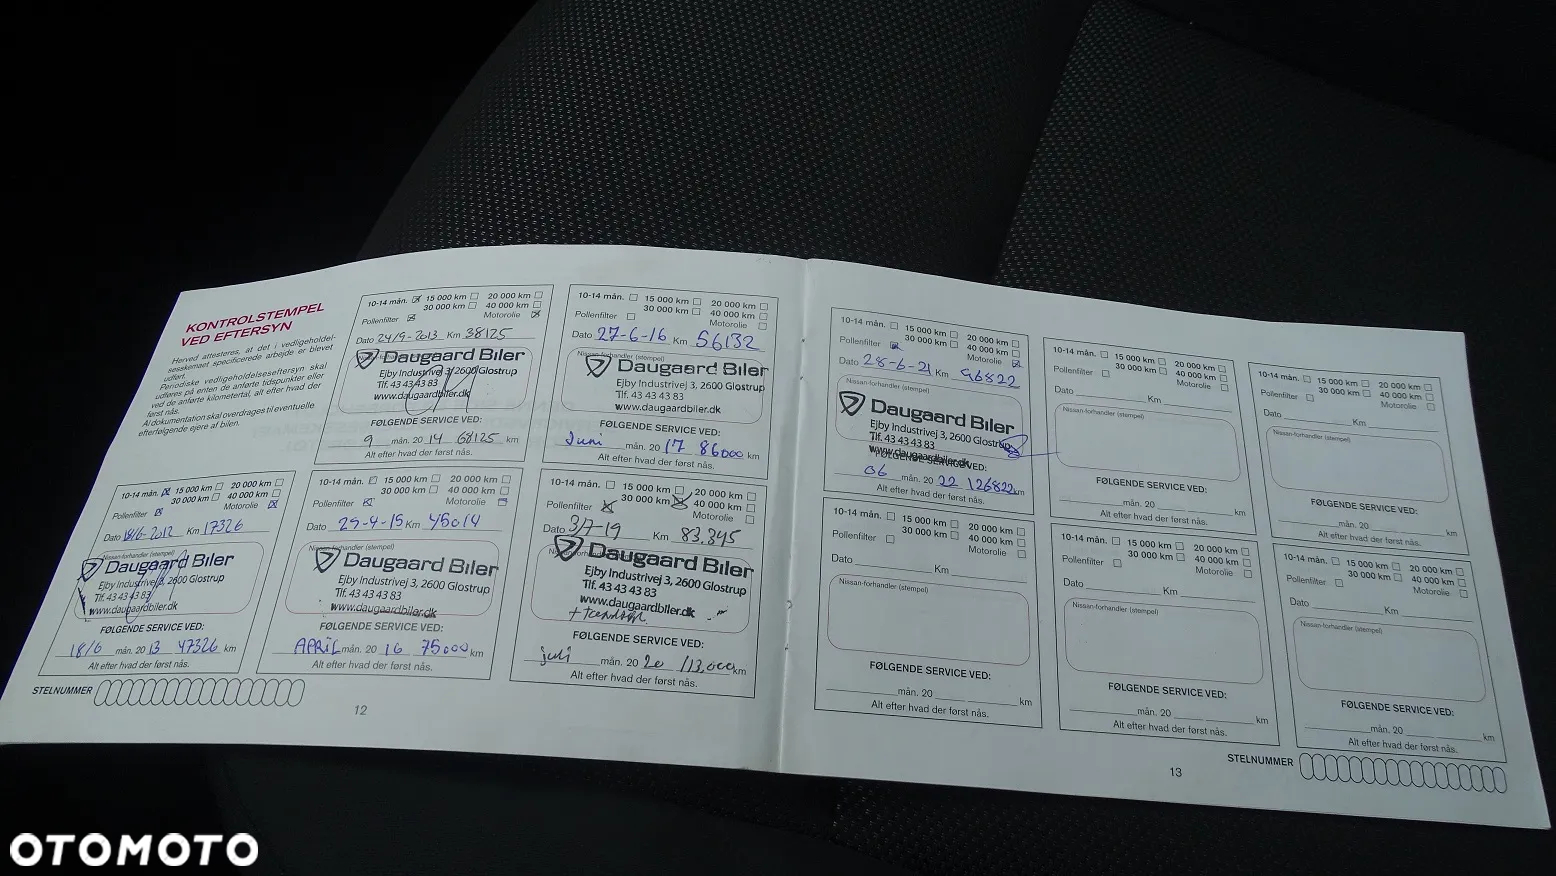 KONTROLSTEMPEL
VED EFTERSYN
Herved attesteres, at det i vedligeholdel-
sesskemaet specificerede arbejde er blevet
udført.
Periodiske vedligeholdelseseftersyn skal
udføres på enten de anførte tidspunkter eller
ved de anførte kilometertal, alt efter hvad der
først nås.
Al dokumentation skal overdrages til eventuelle
efterfølgende ejere af bilen.
10-14 mån. 15 000 km 20 000 km
30 000 km 40 000 km
Pollenfilter Motorolie
Dato 18/6-2012 Km 17326
Nissan-forhandler (stempel)
Daugaard Biler
Ejby Industrivej 3, 2600 Glostrup
Tlf. 43 43 43 83
www.daugaardbiler.dk
FØLGENDE SERVICE VED:
18/6 mån. 20 13 47326 km
Alt efter hvad der først nås.
10-14 mån. 15 000 km 20 000 km
30 000 km 40 000 km
Pollenfilter Motorolie
Dato 24/9-2013 Km 38125
Daugaard Biler
Ejby Industrivej 3, 2600 Glostrup
Tlf. 43 43 43 83
www.daugaardbiler.dk
FØLGENDE SERVICE VED:
9 mån. 20 14 68125 km
Alt efter hvad der først nås.
10-14 mån. 15 000 km 20 000 km
30 000 km 40 000 km
Pollenfilter Motorolie
Dato 29-4-15 Km 45014
Nissan-forhandler (stempel)
Daugaard Biler
Ejby Industrivej 3, 2600 Glostrup
Tlf. 43 43 43 83
www.daugaardbiler.dk
FØLGENDE SERVICE VED:
APRIL mån. 20 16 75000 km
Alt efter hvad der først nås.
10-14 mån. 15 000 km 20 000 km
30 000 km 40 000 km
Pollenfilter Motorolie
Dato 27-6-16 Km 56132
Nissan-forhandler (stempel)
Daugaard Biler
Ejby Industrivej 3, 2600 Glostrup
Tlf. 43 43 43 83
www.daugaardbiler.dk
FØLGENDE SERVICE VED:
Juni mån. 20 17 86000 km
Alt efter hvad der først nås.
10-14 mån. 15 000 km 20 000 km
30 000 km 40 000 km
Pollenfilter Motorolie
Dato 3/7-19 Km 83.345
Daugaard Biler
Ejby Industrivej 3, 2600 Glostrup
Tlf. 43 43 43 83
www.daugaardbiler.dk
FØLGENDE SERVICE VED:
juli mån. 20 20 113,000 km
Alt efter hvad der først nås.
STELNUMMER
12
10-14 mån. 15 000 km 20 000 km
30 000 km 40 000 km
Pollenfilter Motorolie
Dato 28-6-21 Km 96822
Nissan-forhandler (stempel)
Daugaard Biler
Ejby Industrivej 3, 2600 Glostrup
Tlf. 43 43 43 83
www.daugaardbiler.dk
FØLGENDE SERVICE VED:
06 mån. 20 22 126822 km
Alt efter hvad der først nås.
10-14 mån. 15 000 km 20 000 km
30 000 km 40 000 km
Pollenfilter Motorolie
Dato Km
Nissan-forhandler (stempel)
FØLGENDE SERVICE VED:
mån. 20 km
Alt efter hvad der først nås.
10-14 mån. 15 000 km 20 000 km
30 000 km 40 000 km
Pollenfilter Motorolie
Dato Km
Nissan-forhandler (stempel)
FØLGENDE SERVICE VED:
mån. 20 km
Alt efter hvad der først nås.
10-14 mån. 15 000 km 20 000 km
30 000 km 40 000 km
Pollenfilter Motorolie
Dato Km
Nissan-forhandler (stempel)
FØLGENDE SERVICE VED:
mån. 20 km
Alt efter hvad der først nås.
10-14 mån. 15 000 km 20 000 km
30 000 km 40 000 km
Pollenfilter Motorolie
Dato Km
Nissan-forhandler (stempel)
FØLGENDE SERVICE VED:
mån. 20 km
Alt efter hvad der først nås.
10-14 mån. 15 000 km 20 000 km
30 000 km 40 000 km
Pollenfilter Motorolie
Dato Km
Nissan-forhandler (stempel)
FØLGENDE SERVICE VED:
mån. 20 km
Alt efter hvad der først nås.
STELNUMMER
13
OTOMOTO